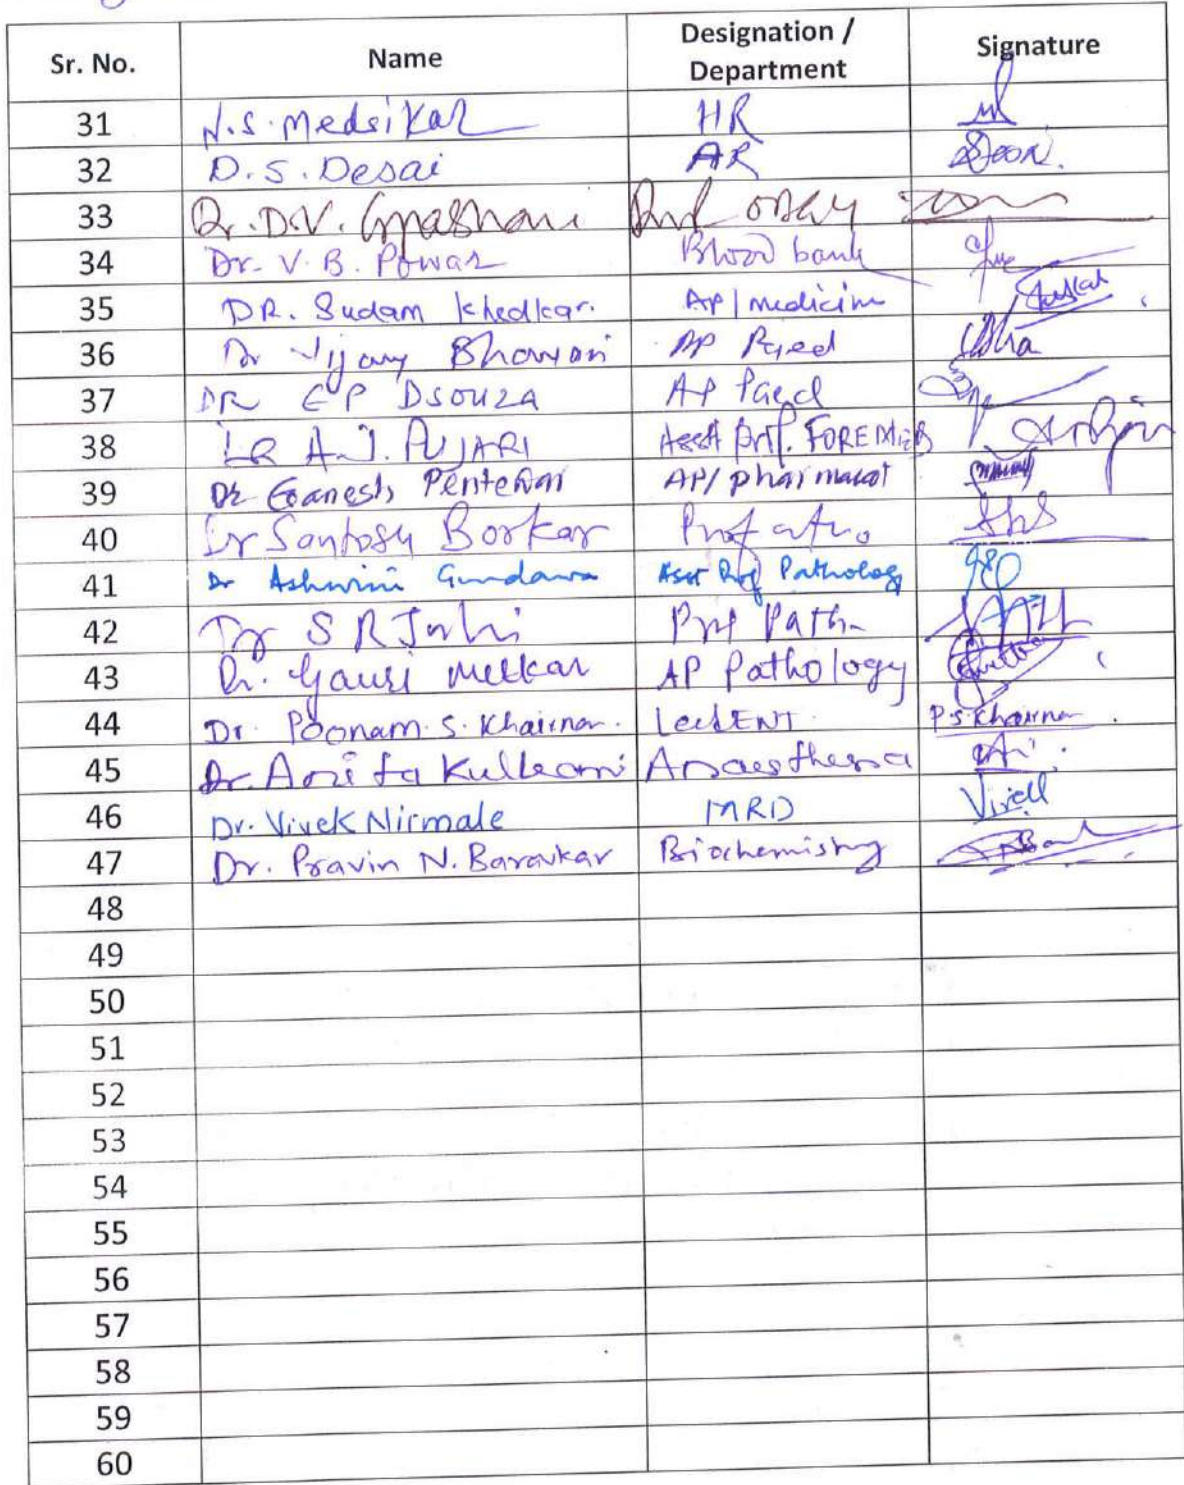 Sr. No. Name Designation / Department Signature
31 N.S. Medsikar HR
32 D.S. Desai AR
33 Dr. D.V. Prof
34 Dr. V. B. Powar Blood bank
35 DR. Sudam Khedkar. AP/medicine
36 Dr Vijay AP Paed
37 DR C P DSOUZA AP Paed
38 DR A.J. PUJARI Asst Prof.
39 Dr Ganesh Pentewar AP/ pharmacol
40 Dr Santosh Borkar Prof
41 Dr Ashwini Gundawa Asst Prof Pathology
42 Dr S R Joshi Prof Path
43 Dr. Gauri Melkar AP Pathology
44 Dr. Poonam. S. Khairnar. Lect ENT. P.S.Khairnar
45 Dr. Anita Kulkarni Anaesthesia
46 Dr. Vivek Nirmale MRD
47 Dr. Pravin N. Baravkar Biochemistry
48
49
50
51
52
53
54
55
56
57
58
59
60